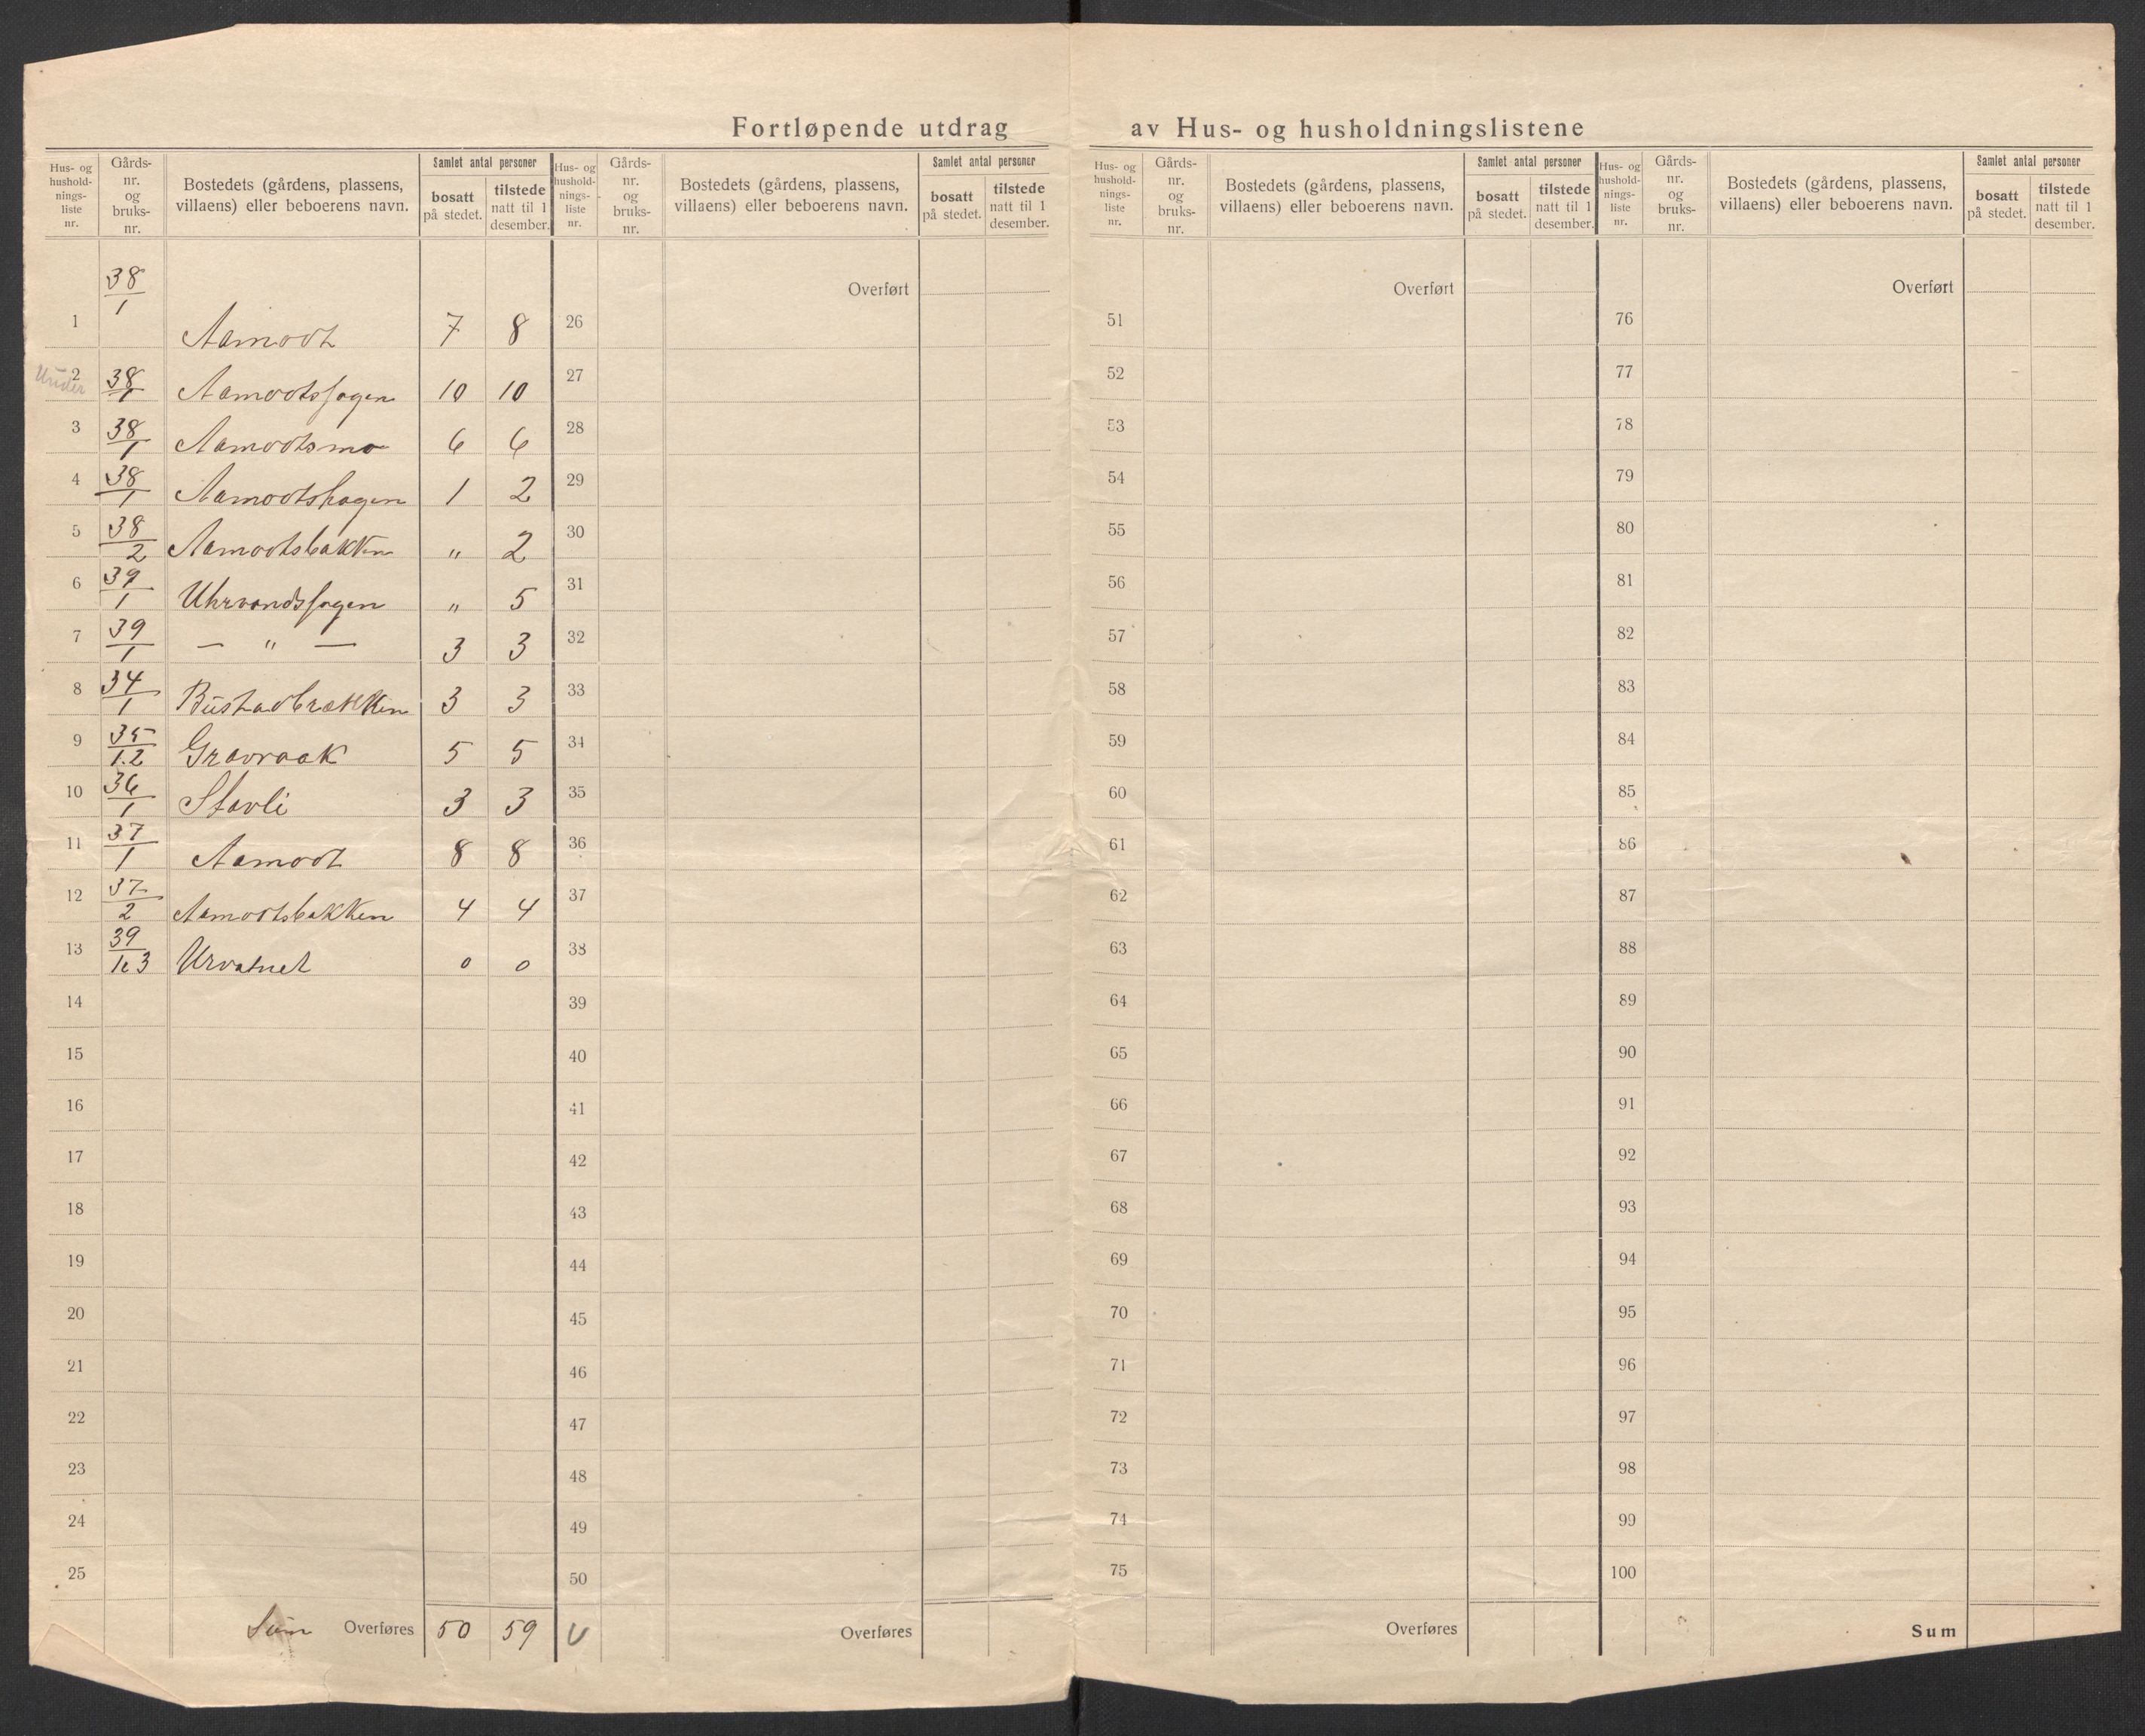 Fortløpende utdrag av Hus- og husholdningslistene
Hus- og hushold- nings- liste nr. | Gårds- nr. og bruks- nr. | Bostedets (gårdens, plassens, villaens) eller beboerens navn. | Samlet antal personer | bosatt på stedet. | tilstede natt til 1 desember.
1 38/1 Aamodt 7 8
2 Under 38/1 Aamodtshagen 10 10
3 38/1 Aamodtsmo 6 6
4 38/1 Aamodtshagen 1 2
5 38/2 Aamodtsbakken " 2
6 39/1 Uhrvandshagen " 5
7 39/1 — " — 3 3
8 34/1 Bustadbrækken 3 3
9 35/1.2 Gravraak 5 5
10 36/1 Stavli 3 3
11 37/1 Aamodt 8 8
12 37/2 Aamodtsbakken 4 4
13 39/1.3 Urvatnet 0 0
14
15
16
17
18
19
20
21
22
23
24
25
Sum Overføres 50 59 V
Hus- og hushold- nings- liste nr. | Gårds- nr. og bruks- nr. | Bostedets (gårdens, plassens, villaens) eller beboerens navn. | Samlet antal personer | bosatt på stedet. | tilstede natt til 1 desember.
Overført
26
27
28
29
30
31
32
33
34
35
36
37
38
39
40
41
42
43
44
45
46
47
48
49
50
Overføres
Hus- og hushold- nings- liste nr. | Gårds- nr. og bruks- nr. | Bostedets (gårdens, plassens, villaens) eller beboerens navn. | Samlet antal personer | bosatt på stedet. | tilstede natt til 1 desember.
Overført
51
52
53
54
55
56
57
58
59
60
61
62
63
64
65
66
67
68
69
70
71
72
73
74
75
Overføres
Hus- og hushold- nings- liste nr. | Gårds- nr. og bruks- nr. | Bostedets (gårdens, plassens, villaens) eller beboerens navn. | Samlet antal personer | bosatt på stedet. | tilstede natt til 1 desember.
Overført
76
77
78
79
80
81
82
83
84
85
86
87
88
89
90
91
92
93
94
95
96
97
98
99
100
Sum